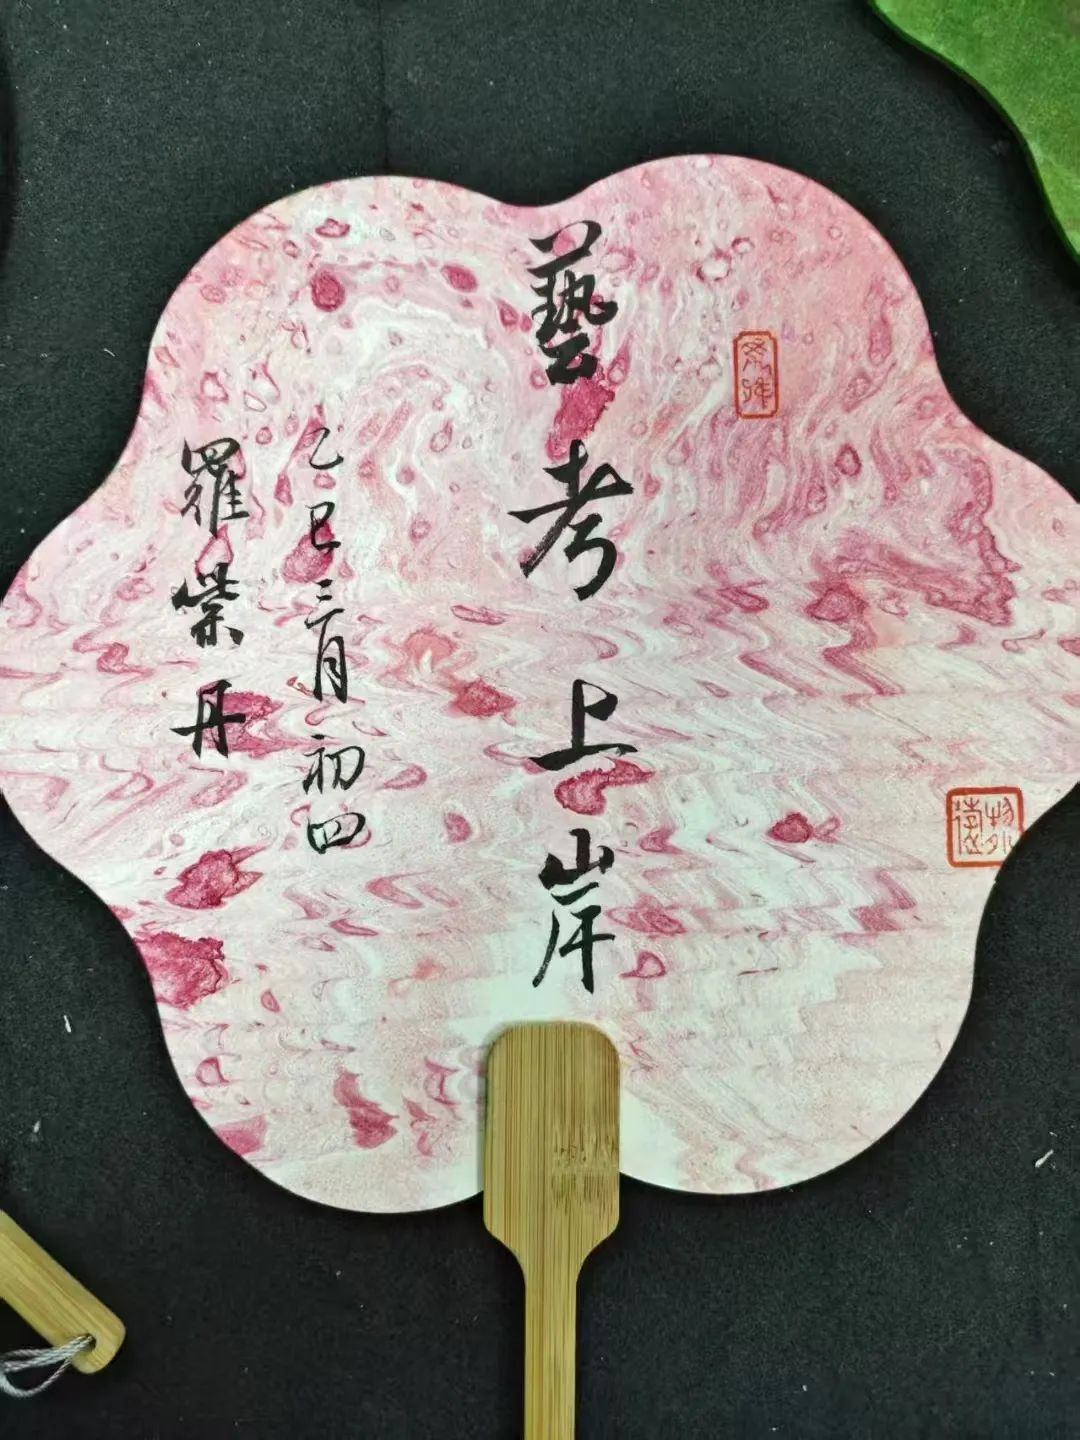 藝考上岸
乙巳三月初四
羅紫丹